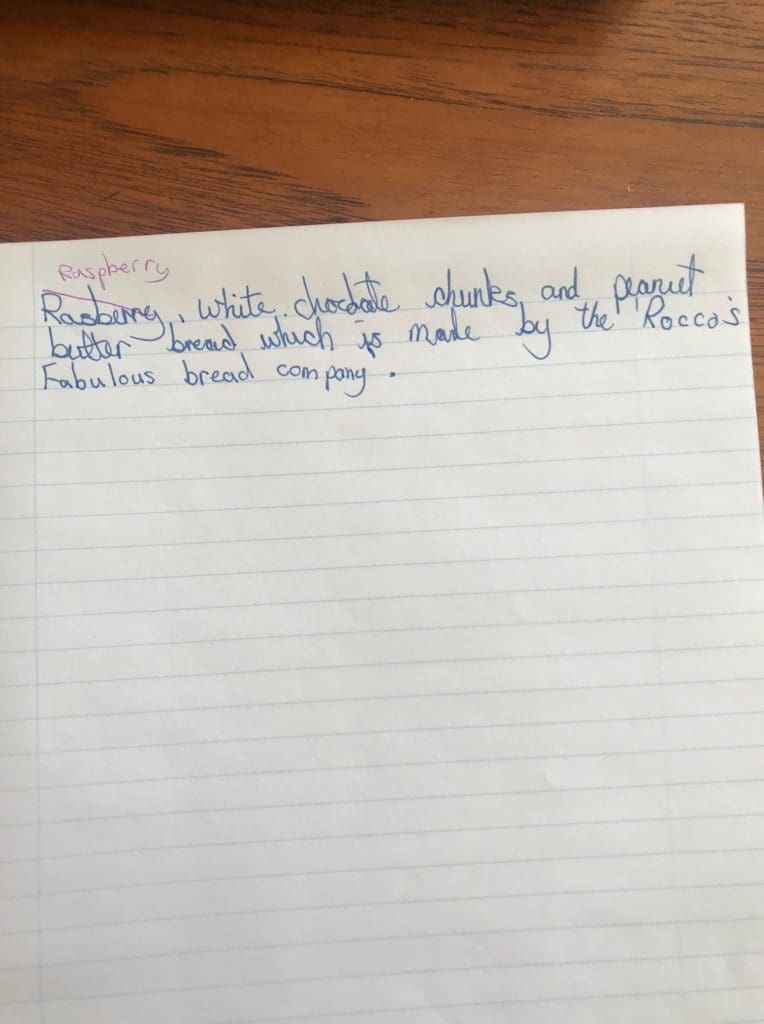 Raspberry
Rasberry, white chocolate chunks, and peanut
butter bread which is made by the Rocco's
Fabulous bread company.